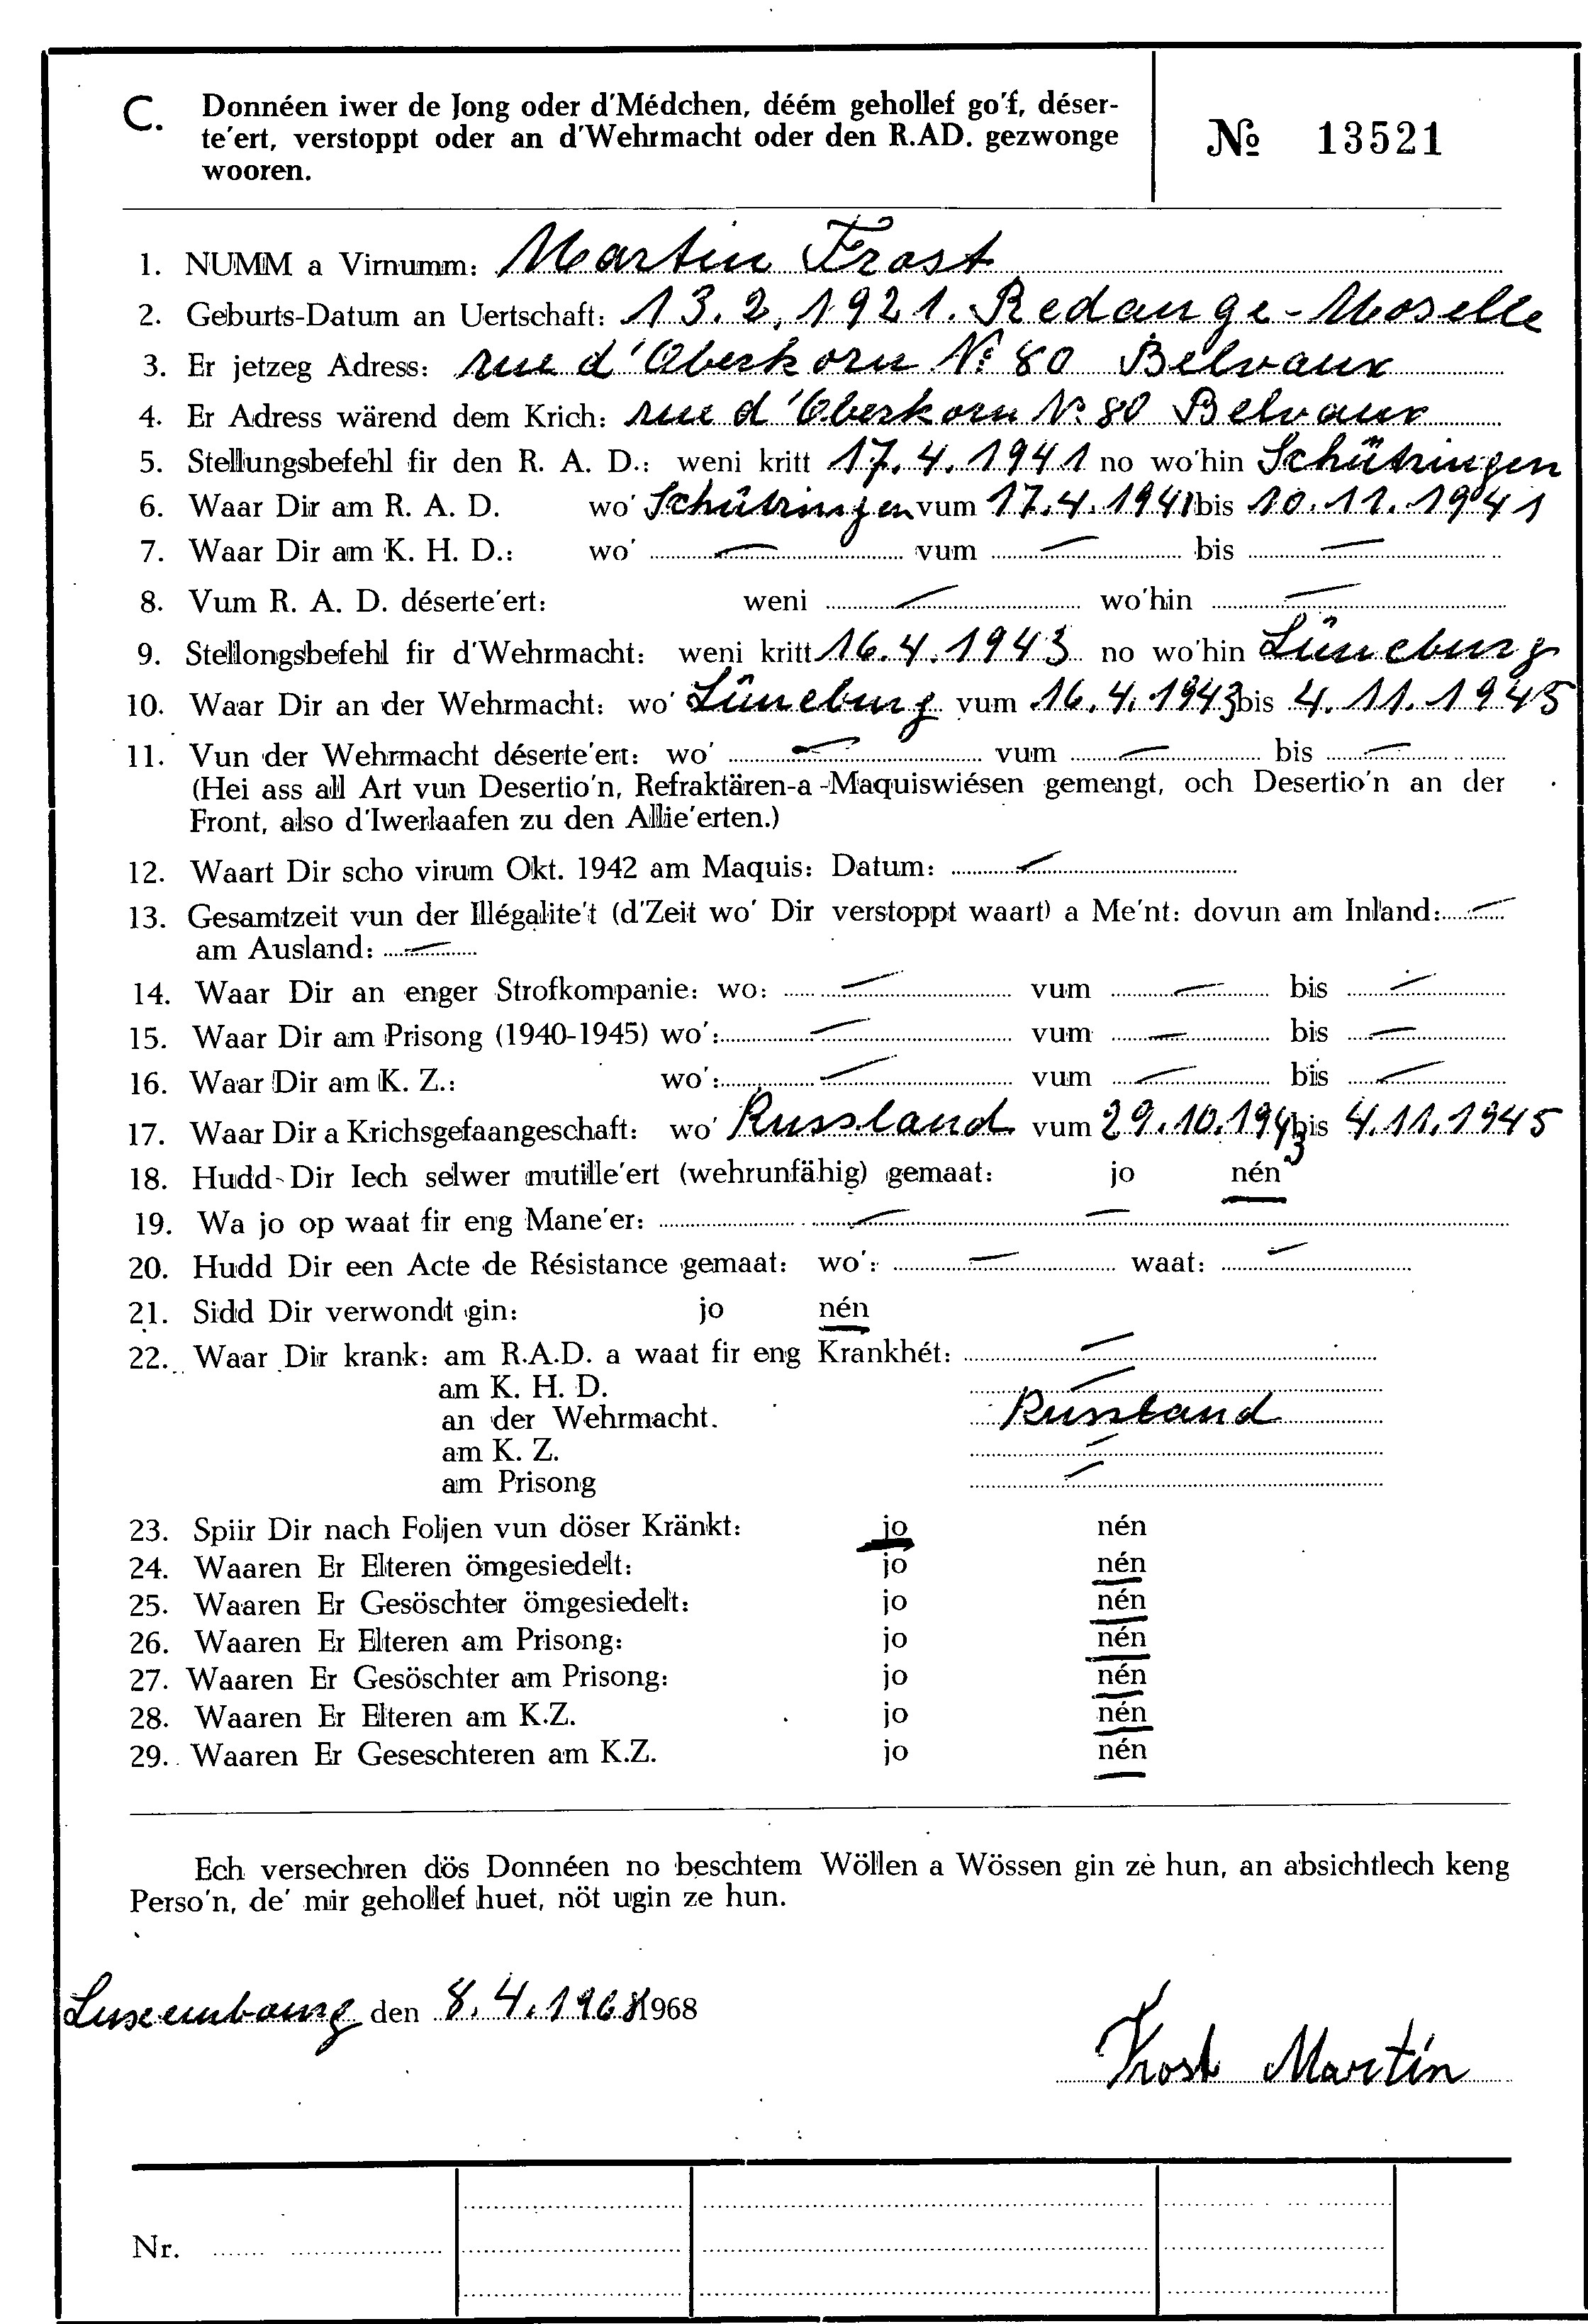 C. Donnéen iwer de Jong oder d'Médchen, déém gehollef go'f, déser-
te'ert, verstoppt oder an d'Wehrmacht oder den R.AD. gezwonge
wooren.
№ 13521
1. NUMM a Virnumm: Martin Frost
2. Geburts-Datum an Uertschaft: 13.2.1921. Redange-Moselle
3. Er jetzeg Adress: rue d'Oberkorn № 80 Belvaux
4. Er Adress wärend dem Krich: rue d'Oberkorn № 80 Belvaux
5. Stellungsbefehl fir den R. A. D.: weni kritt 17.4.1941 no wo'hin Schüttringen
6. Waar Dir am R. A. D. wo' Schüttringen vum 17.4.1941 bis 10.11.1941
7. Waar Dir am K. H. D.: wo' — vum — bis —
8. Vum R. A. D. déserte'ert: weni — wo'hin —
9. Stellongsbefehl fir d'Wehrmacht: weni kritt 16.4.1943 no wo'hin Lüneburg
10. Waar Dir an der Wehrmacht: wo' Lüneburg vum 16.4.1943 bis 4.11.1945
11. Vun der Wehrmacht déserte'ert: wo' — vum — bis —
(Hei ass all Art vun Desertio'n, Refraktären-a-Maquiswiésen gemengt, och Desertio'n an der
Front, also d'Iwerlaafen zu den Allie'erten.)
12. Waart Dir scho virum Okt. 1942 am Maquis: Datum: —
13. Gesamtzeit vun der Illégalite't (d'Zeit wo' Dir verstoppt waart) a Me'nt: dovun am Inland: —
am Ausland: —
14. Waar Dir an enger Strofkompanie: wo: — vum — bis —
15. Waar Dir am Prisong (1940-1945) wo': — vum — bis —
16. Waar Dir am K. Z.: wo': — vum — bis —
17. Waar Dir a Krichsgefaangeschaft: wo' Russland vum 29.10.1943 bis 4.11.1945
18. Hudd Dir Iech selwer mutille'ert (wehrunfähig) gemaat: jo nén
19. Wa jo op waat fir eng Mane'er: — —
20. Hudd Dir een Acte de Résistance gemaat: wo': — waat: —
21. Sidd Dir verwondt gin: jo nén
22. Waar Dir krank: am R.A.D. a waat fir eng Krankhét: —
am K. H. D. —
an der Wehrmacht. Russland
am K. Z. —
am Prisong —
23. Spiir Dir nach Foljen vun döser Kränkt: jo nén
24. Waaren Er Elteren ömgesiedelt: jo nén
25. Waaren Er Gesöschter ömgesiedelt: jo nén
26. Waaren Er Elteren am Prisong: jo nén
27. Waaren Er Gesöschter am Prisong: jo nén
28. Waaren Er Elteren am K.Z. jo nén
29. Waaren Er Geseschteren am K.Z. jo nén
Ech versechren dös Donnéen no beschtem Wöllen a Wössen gin ze hun, an absichtlech keng
Perso'n, de' mir gehollef huet, nöt ugin ze hun.
Luxembourg den 8.4.1968 1968
Frost Martin
Nr.